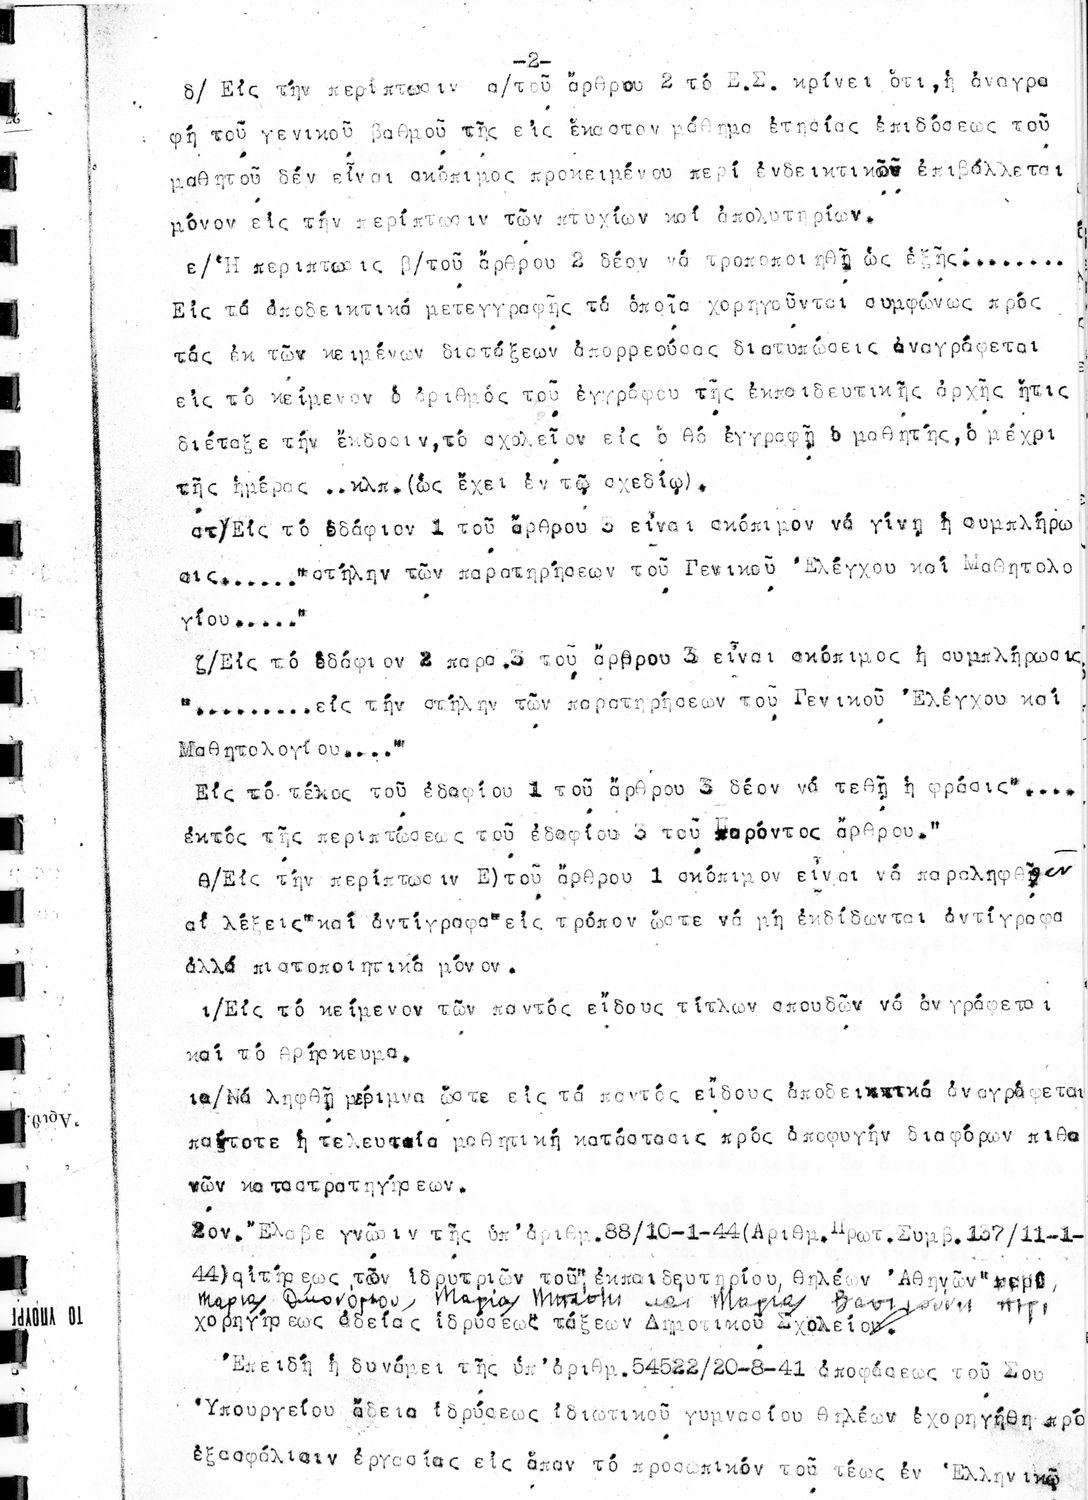 -2-
δ/ Εἰς τήν περίπτωσιν α/τοῦ ἄρθρου 2 τό Ε.Σ. κρίνει ὅτι,ἡ ἀναγρα
φή τοῦ γενικοῦ βαθμοῦ τῆς εἰς ἕκαστον μάθημα ἐτησίας ἐπιδόσεως τοῦ
μαθητοῦ δέν εἶναι σκόπιμος προκειμένου περί ἐνδεικτικῶν ἐπιβάλλεται
μόνον εἰς τήν περίπτωσιν τῶν πτυχίων καί ἀπολυτηρίων.
ε/Ἡ περιπτωσις β/τοῦ ἄρθρου 2 δέον νά τροποποιηθῇ ὡς ἑξῆς:........
Εἰς τά ἀποδεικτικά μετεγγραφῆς τά ὁποῖα χορηγοῦνται συμφώνως πρός
τάς ἐκ τῶν κειμένων διατάξεων ἀπορρεούσας διατυπώσεις ἀναγράφεται
εἰς τό κείμενον ὁ ἀριθμός τοῦ ἐγγράφου τῆς ἐκπαιδευτικῆς ἀρχῆς ἥτις
διέταξε τήν ἔκδοσιν,τό σχολεῖον εἰς ὅ θά ἐγγραφῇ ὁ μαθητής,ὁ μέχρι
τῆς ἡμέρας ..κλπ.(ὡς ἔχει ἐν τῷ σχεδίῳ).
στ/Εἰς τό ἐδάφιον 1 τοῦ ἄρθρου 3 εἶναι σκόπιμον νά γίνῃ ἡ συμπλήρω
σις......"στήλην τῶν παρατηρήσεων τοῦ Γενικοῦ Ἐλέγχου καί Μαθητολο
γίου....."
ζ/Εἰς τό ἐδάφιον 2 παρα.3 τοῦ ἄρθρου 3 εἶναι σκόπιμος ἡ συμπλήρωσις
".........εἰς τήν στήλην τῶν παρατηρήσεων τοῦ Γενικοῦ Ἐλέγχου καί
Μαθητολογίου...."
Εἰς τό τέλος τοῦ ἐδαφίου 1 τοῦ ἄρθρου 3 δέον νά τεθῇ ἡ φράσις"....
ἐκτός τῆς περιπτώσεως τοῦ ἐδαφίου 3 τοῦ Παρόντος ἄρθρου."
θ/Εἰς τήν περίπτωσιν Ε)τοῦ ἄρθρου 1 σκόπιμον εἶναι νά παραληφθοῦν
αἱ λέξεις"καί ἀντίγραφα"εἰς τρόπον ὥστε νά μή ἐκδίδωνται ἀντίγραφα
ἀλλά πιστοποιητικά μόνον.
ι/Εἰς τό κείμενον τῶν παντός εἴδους τίτλων σπουδῶν νά ἀνγράφεται
καί τό θρήσκευμα.
ια/Νά ληφθῇ μέριμνα ὥστε εἰς τά παντός εἴδους ἀποδεικτικά ἀναγράφεται
πάντοτε ἡ τελευταία μαθητική κατάστασις πρός ἀποφυγήν διαφόρων πιθα
νῶν καταστρατηγήσεων.
2ον. Ἔλαβε γνῶσιν τῆς ὑπ'ἀριθμ.88/10-1-44(Αριθμ.Πρωτ.Συμβ.137/11-1-
44)αἰτήσεως τῶν ἱδρυτριῶν τοῦ"ἐκπαιδευτηρίου θηλέων Ἀθηνῶν"
Μαρίας Οἰκονόμου, Μαρίας καί Μαρίας περί
χορηγήσεως ἀδείας ἱδρύσεως τάξεων Δημοτικοῦ Σχολείου.
Ἐπειδή ἡ δυνάμει τῆς ὑπ'ἀριθμ.54522/20-8-41 ἀποφάσεως τοῦ Σου
Ὑπουργείου ἄδεια ἱδρύσεως ἰδιωτικοῦ γυμνασίου θηλέων ἐχορηγήθη πρό
ἐξασφάλισιν ἐργασίας εἰς ἅπαν τό προσωπικόν τοῦ τέως ἐν Ἑλληνικῷ
Ἀριθ.
ΤΟ ΥΠΟΥΡΓ